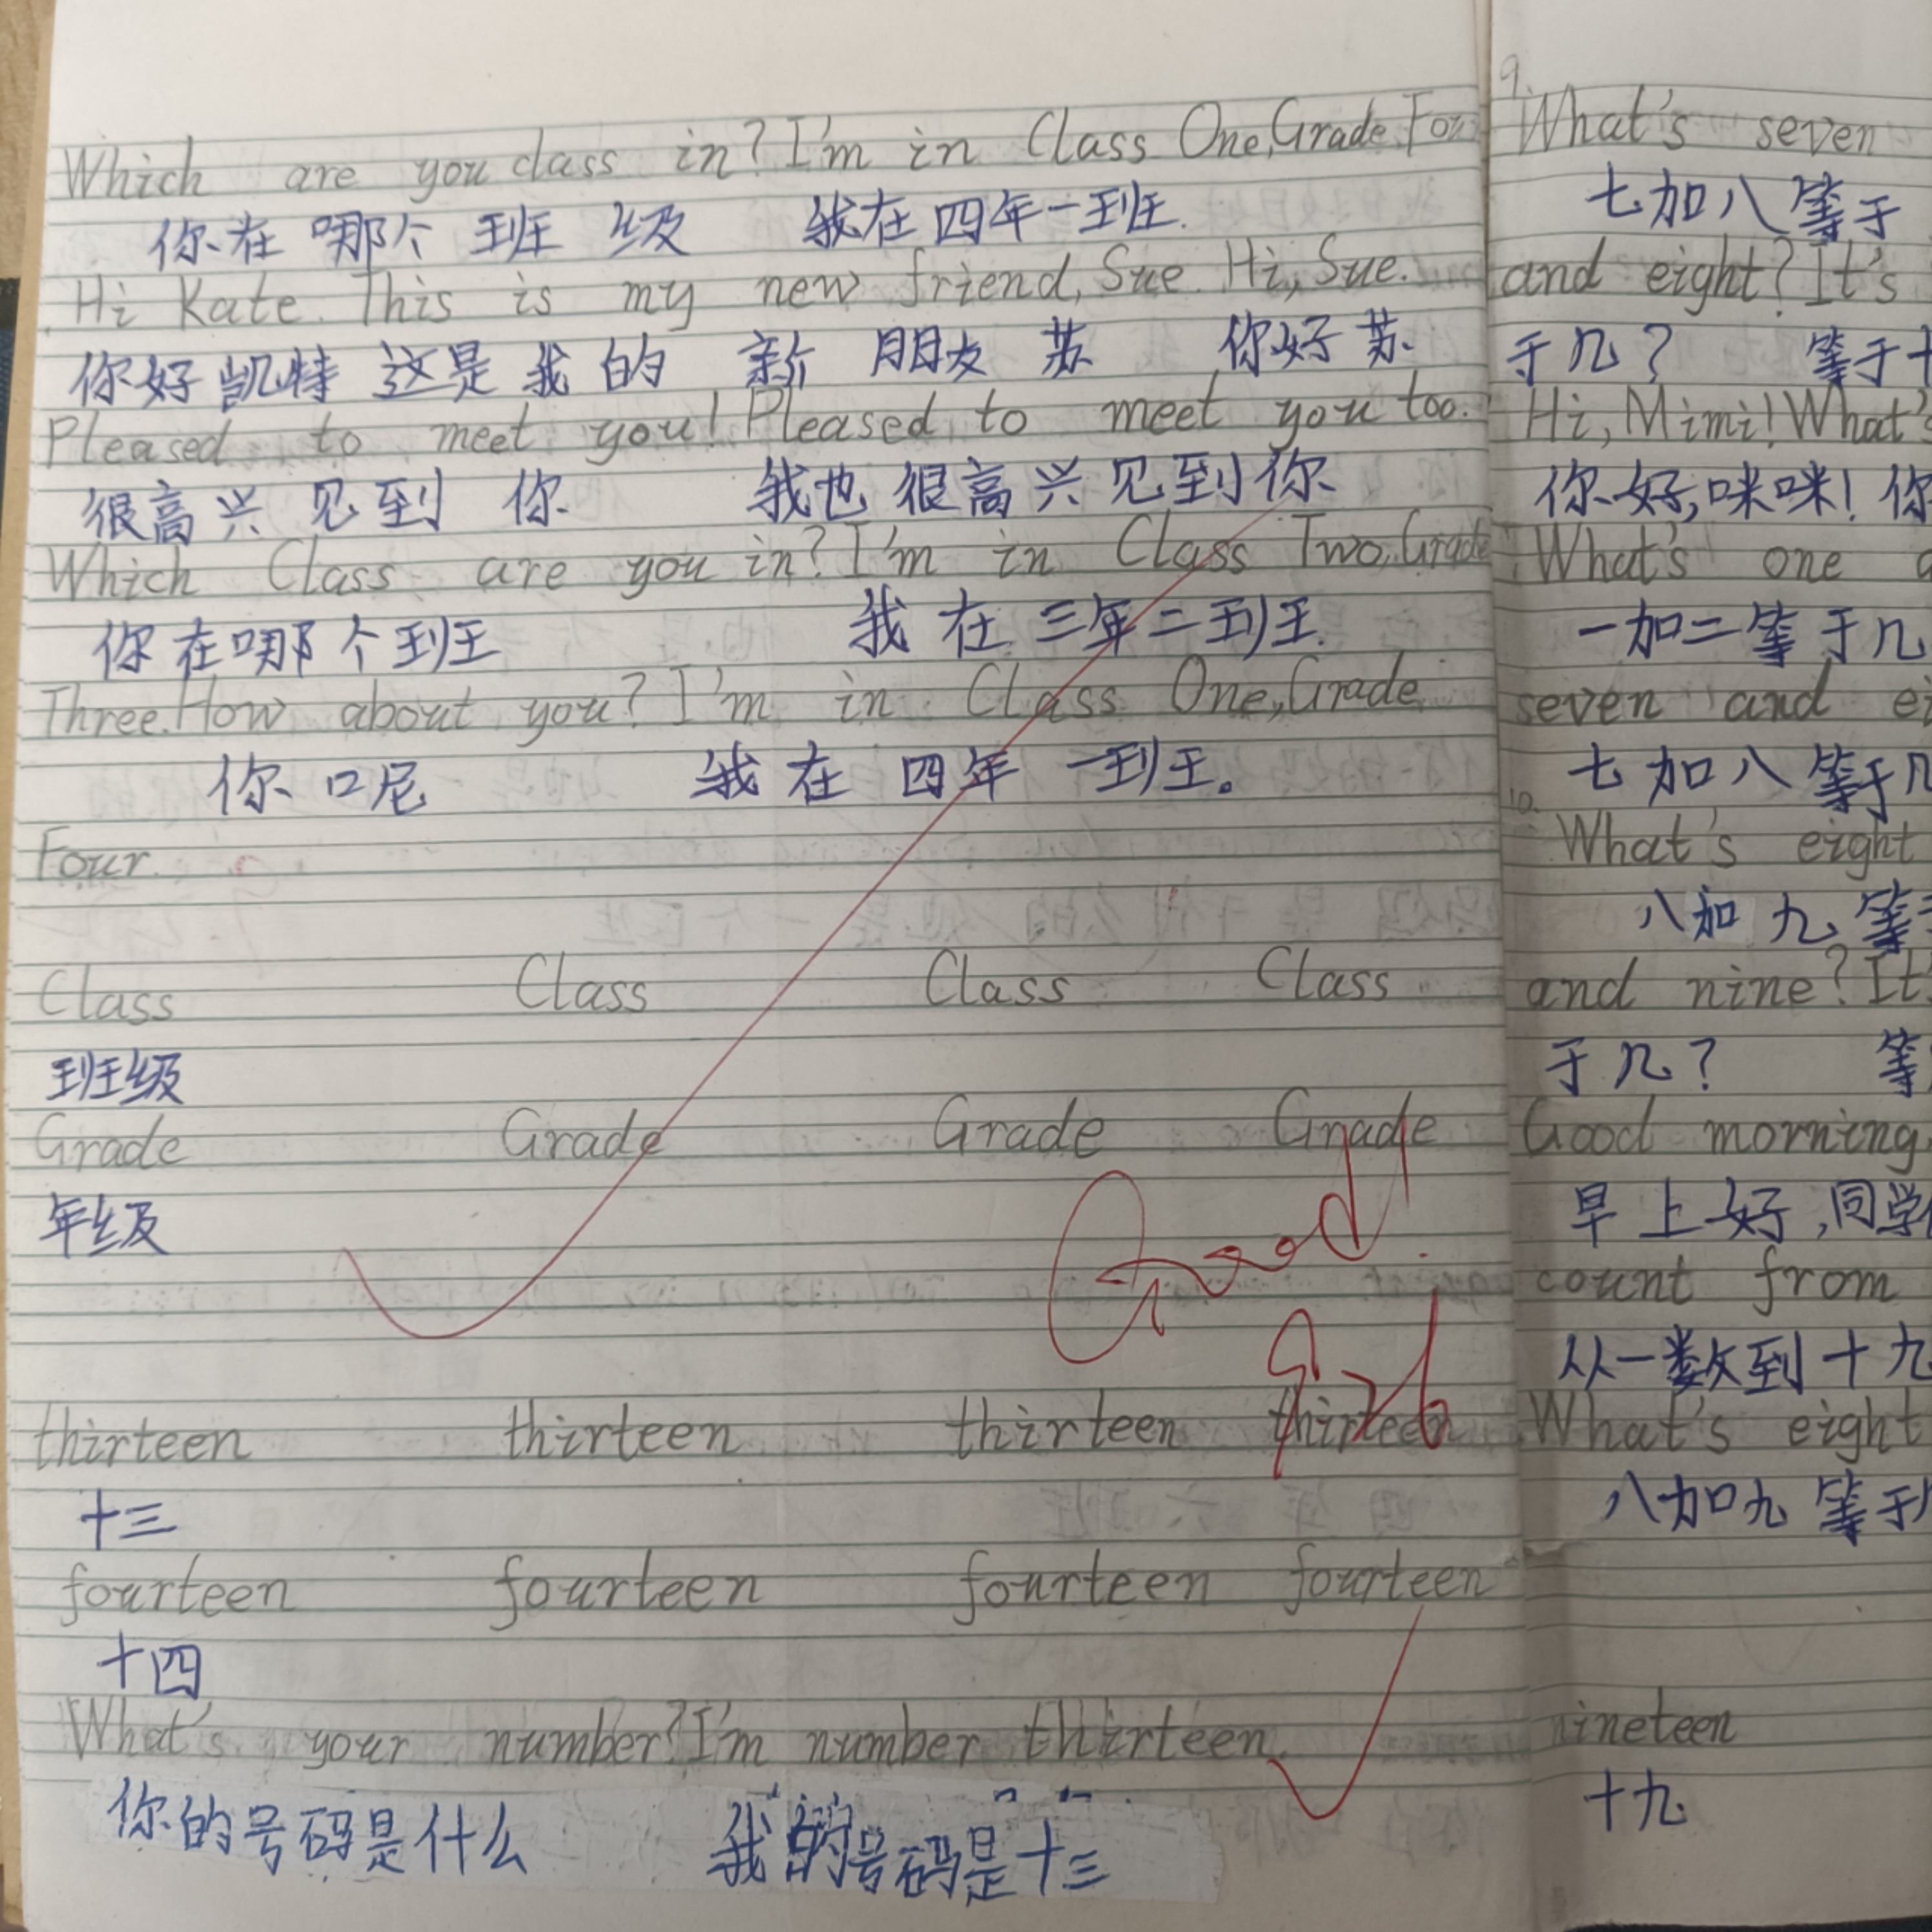 Which are you class in? I'm in Class One, Grade Four
你在哪个班级 我在四年一班.
Hi Kate. This is my new friend, Sue. Hi, Sue.
你好凯特 这是我的新朋友苏 你好苏.
Pleased to meet you! Pleased to meet you too.
很高兴见到你 我也很高兴见到你
Which Class are you in? I'm in Class Two, Grade
你在哪个班 我在三年二班.
Three. How about you? I'm in Class One, Grade
你呢 我在四年一班。
Four.
Class Class Class Class
班级
Grade Grade Grade Grade
年级
Good!
9.26
thirteen thirteen thirteen thirteen
十三
fourteen fourteen fourteen fourteen
十四
What's your number? I'm number thirteen.
你的号码是什么 我的号码是十三
9.
What's seven
七加八等于
and eight? It's
于几? 等于十
Hi, Mimi! What's
你好,咪咪! 你
What's one
一加二等于几
seven and
七加八等于几
10.
What's eight
八加九等于
and nine? It's
于几? 等
Good morning
早上好,同学
count from
从一数到十九
What's eight
八加九等于
nineteen
十九